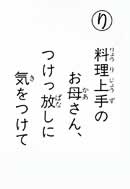 り
料理上手の
お母さん、
つけっ放しに
気をつけて